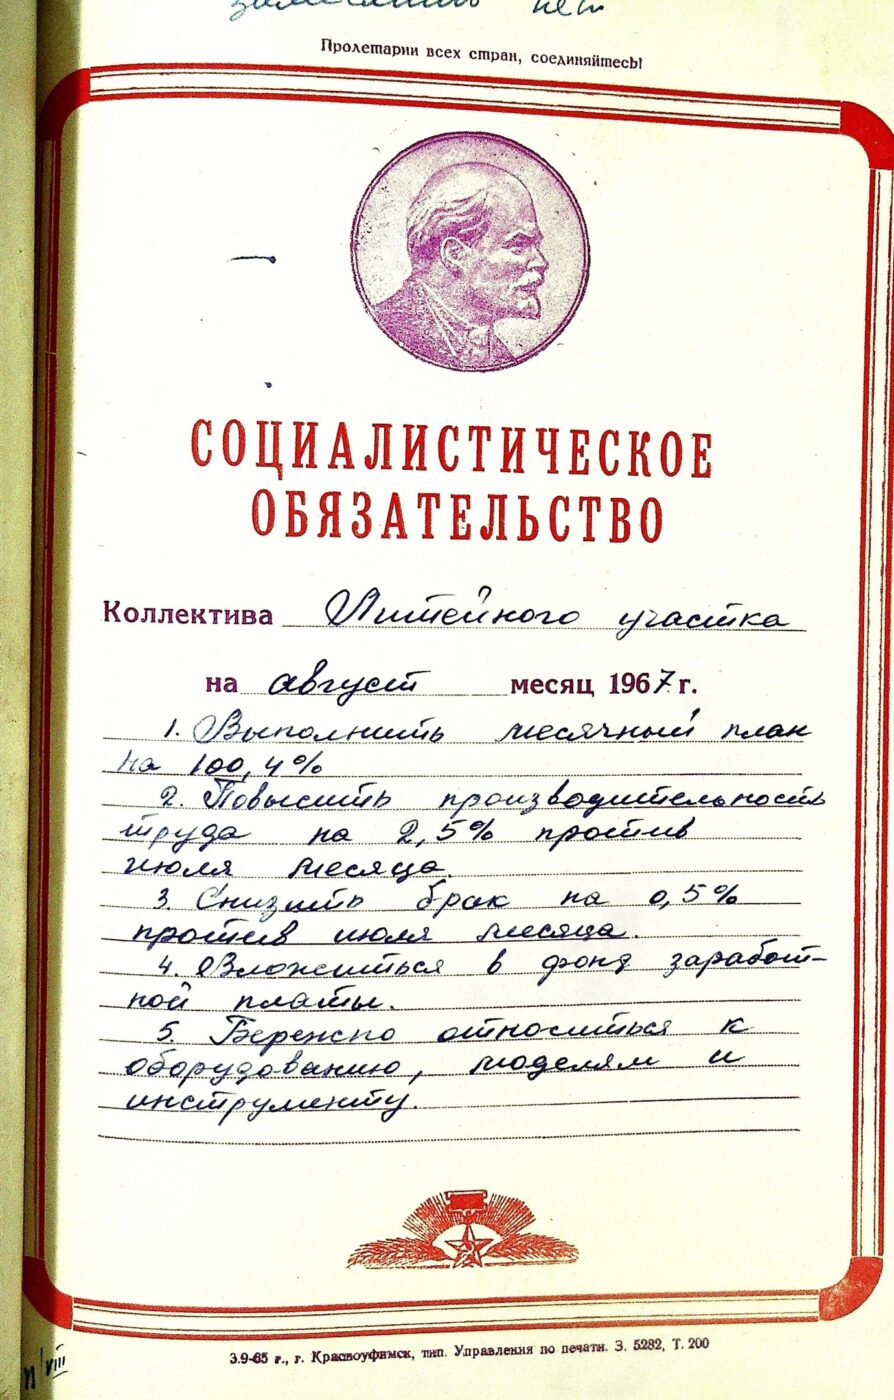 замечаний нет
Пролетарии всех стран, соединяйтесь!
СОЦИАЛИСТИЧЕСКОЕ
ОБЯЗАТЕЛЬСТВО
Коллектива Литейного участка
на август месяц 1967 г.
1. Выполнить месячный план
на 100,4%
2. Повысить производительность
труда на 2,5% против
июля месяца.
3. Снизить брак на 0,5%
против июля месяца.
4. Вложиться в фонд заработ-
ной платы.
5. Бережно относиться к
оборудованию, моделям и
инструменту.
3.9-65 г., г. Красноуфимск, тип. Управления по печати. З. 5282, Т. 200